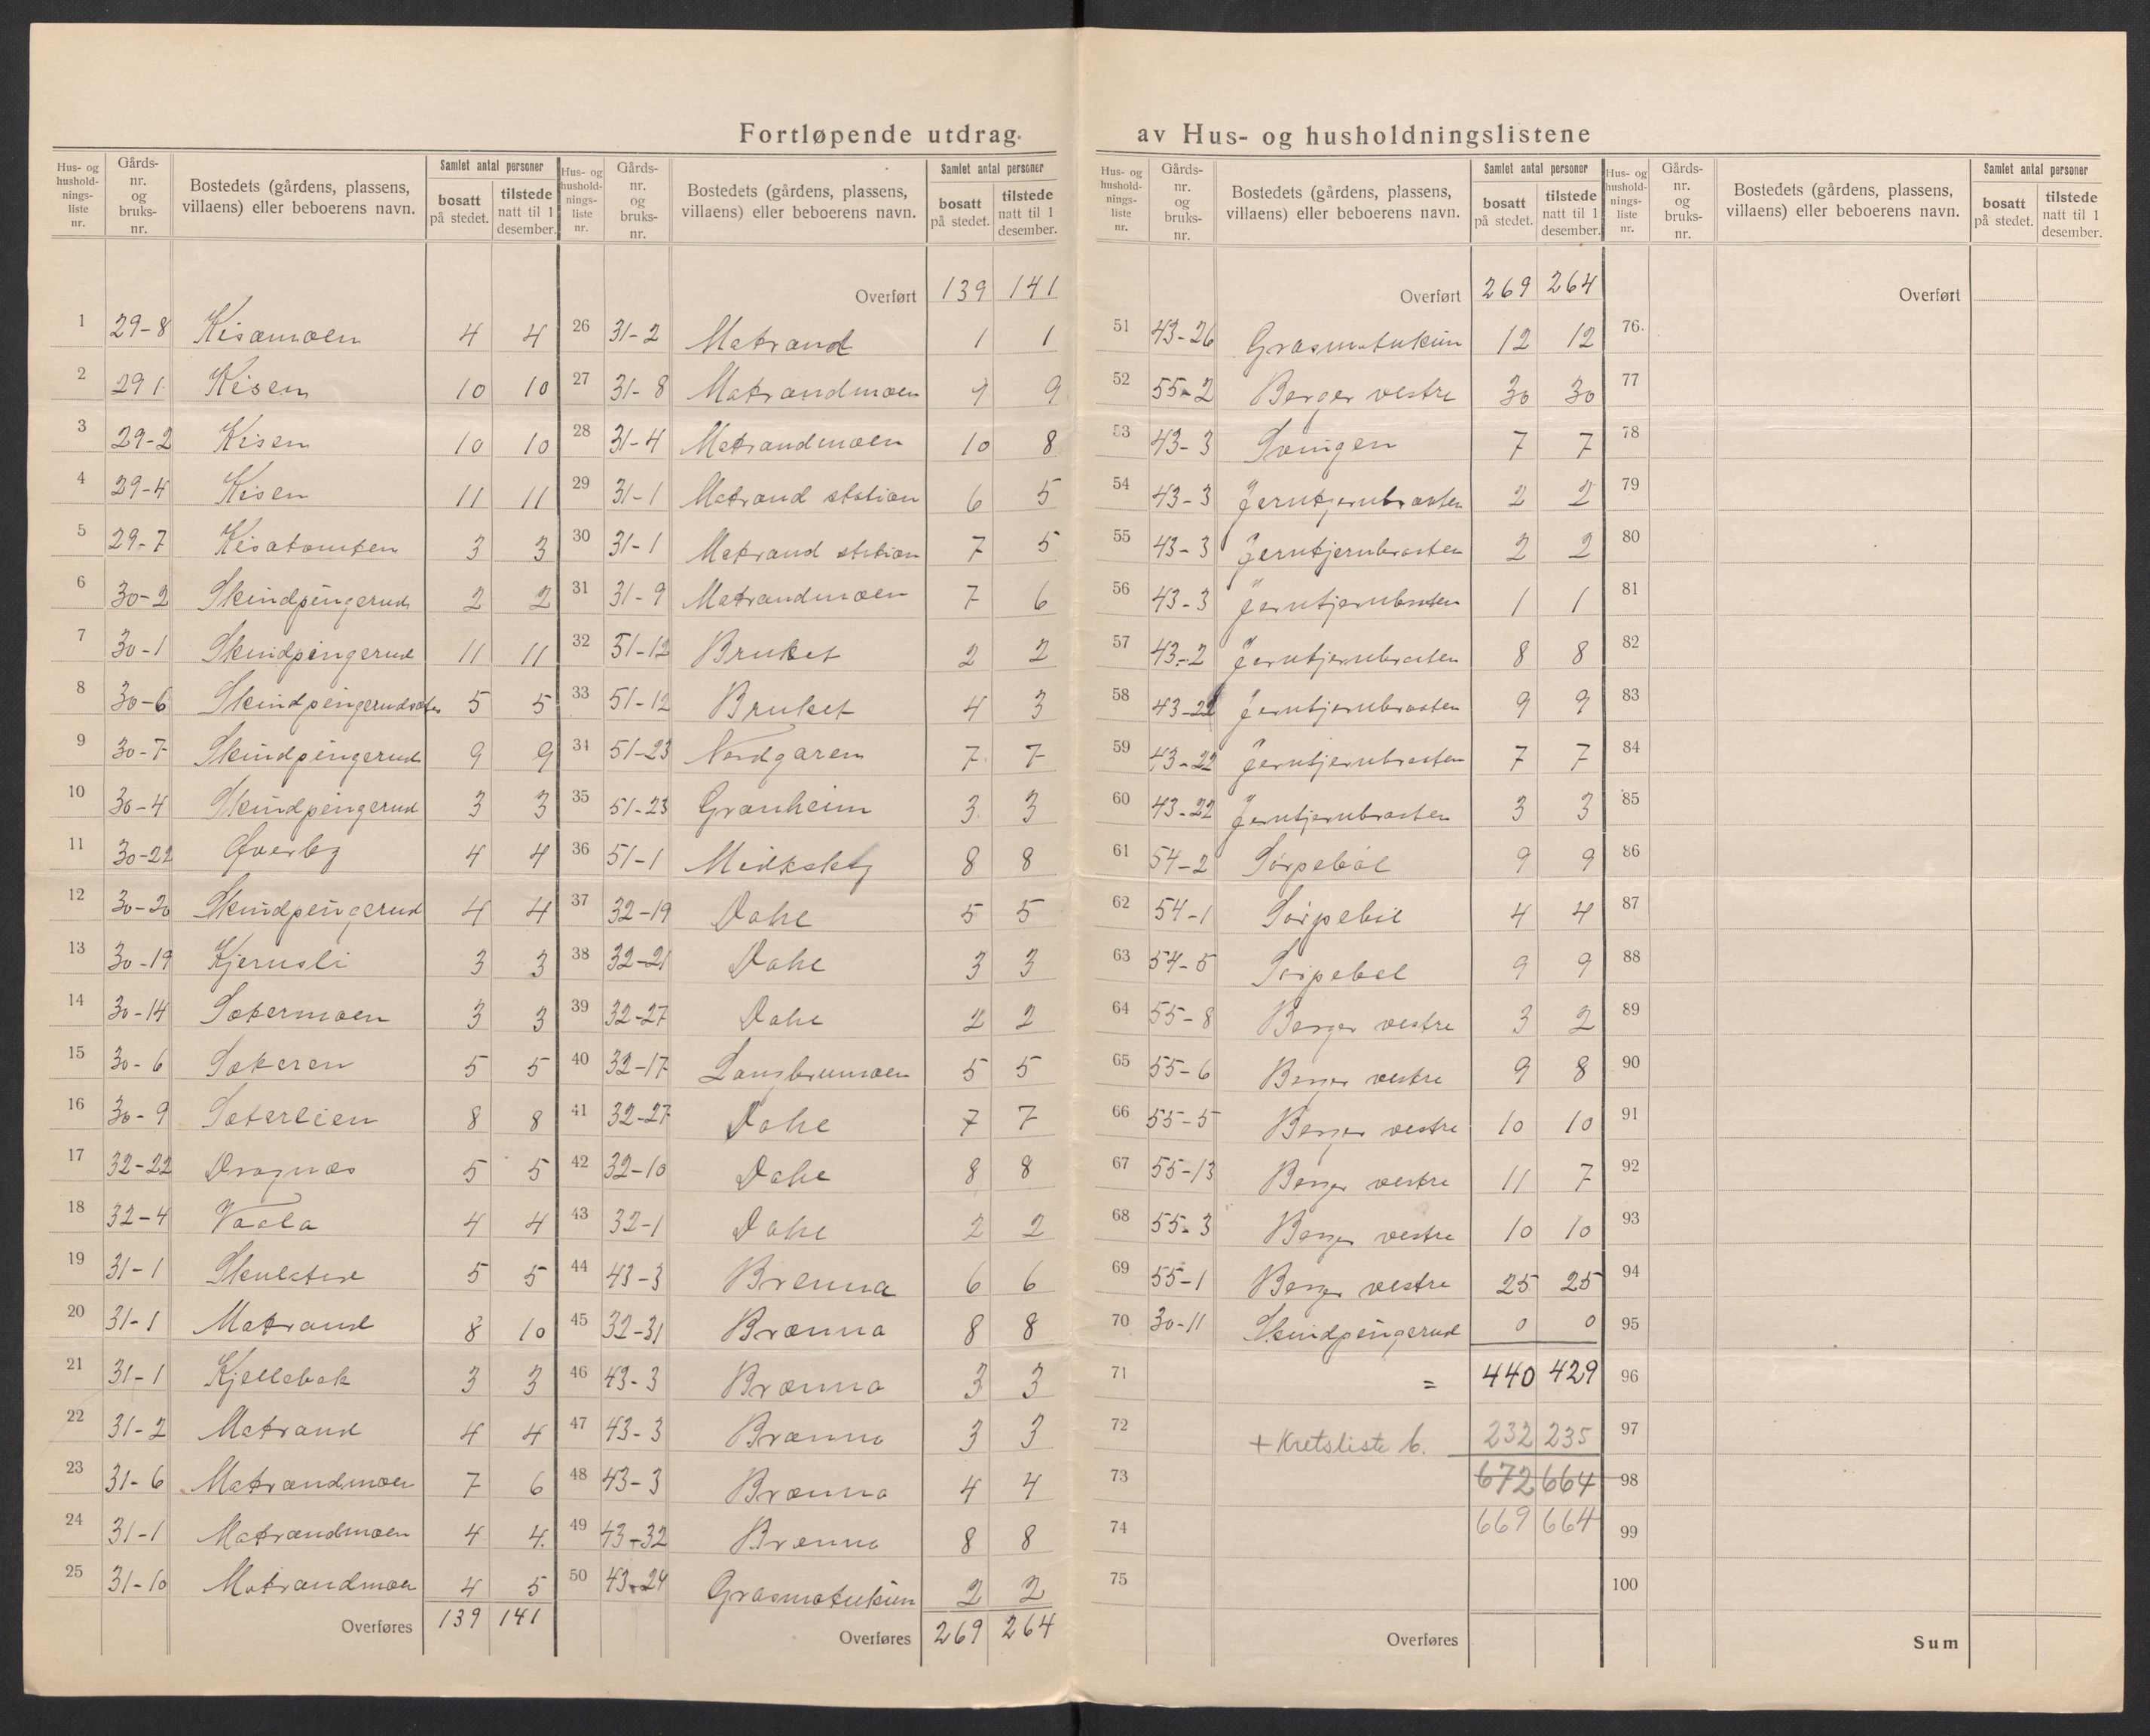 Fortløpende utdrag av Hus- og husholdningslistene
Hus- og husholdnings-liste nr. | Gårds-nr. og bruks-nr. | Bostedets (gårdens, plassens, villaens) eller beboerens navn. | Samlet antal personer | bosatt på stedet. | tilstede natt til 1 desember.
1 29-8 Kisamoen 4 4
2 29 1 Kisen 10 10
3 29-2 Kisen 10 10
4 29-4 Kisen 11 11
5 29-7 Kisatomten 3 3
6 30-2 Skindpengerud 2 2
7 30-1 Skindpengerud 11 11
8 30-6 5 5
9 30-7 Skindpengerud 9 9
10 30-4 Skindpengerud 3 3
11 30-22 Øverby 4 4
12 30-20 Skindpengerud 4 4
13 30-19 Kjernsli 3 3
14 30-14 Sætermoen 3 3
15 30-6 Sæteren 5 5
16 30-9 Sæterlien 8 8
17 32-22 Dragnæs 5 5
18 32-4 Vaala 4 4
19 31-1 5 5
20 31-1 Matrand 8 10
21 31-1 Kjellebak 3 3
22 31-2 Matrand 4 4
23 31-6 Matrandmoen 7 6
24 31-1 Matrandmoen 4 4
25 31-10 Matrandmoen 4 5
Overføres 139 141
Hus- og husholdnings-liste nr. | Gårds-nr. og bruks-nr. | Bostedets (gårdens, plassens, villaens) eller beboerens navn. | Samlet antal personer | bosatt på stedet. | tilstede natt til 1 desember.
Overført 139 141
26 31-2 Matrand 1 1
27 31-8 Matrandmoen 9 9
28 31-4 Matrandmoen 10 8
29 31-1 Matrand station 6 5
30 31-1 Matrand station 7 5
31 31-9 Matrandmoen 7 6
32 51-12 Bruket 2 2
33 51-12 Bruket 4 3
34 51-23 Nordgaren 7 7
35 51-23 Granheim 3 3
36 51-1 8 8
37 32-19 Dahe 5 5
38 32-21 Dahe 3 3
39 32-27 Dahe 2 2
40 32-17 Langbrumoen 5 5
41 32-27 Dahe 7 7
42 32-10 Dahe 8 8
43 32-1 Dahe 2 2
44 43-3 Brenna 6 6
45 32-31 Brænna 8 8
46 43-3 Brænna 3 3
47 43-3 Brænna 3 3
48 43-3 Brænna 4 4
49 43-32 Brenna 8 8
50 43-24 2 2
Overføres 269 264
Hus- og husholdnings-liste nr. | Gårds-nr. og bruks-nr. | Bostedets (gårdens, plassens, villaens) eller beboerens navn. | Samlet antal personer | bosatt på stedet. | tilstede natt til 1 desember.
Overført 269 264
51 43-26 12 12
52 55-2 Berger vestre 30 30
53 43-3 Svingen 7 7
54 43-3 Jerntjernbraaten 2 2
55 43-3 Jerntjernbraaten 2 2
56 43-3 Jerntjernbraaten 1 1
57 43-2 Jerntjernbraaten 8 8
58 43-22 Jerntjernbraaten 9 9
59 43-22 Jerntjernbraaten 7 7
60 43-22 Jerntjernbraaten 3 3
61 54-2 Sørpebøl 9 9
62 54-1 Sørpebøl 4 4
63 54-5 Sørpebøl 9 9
64 55-8 Berger vestre 3 2
65 55-6 Berger vestre 9 8
66 55-5 Berger vestre 10 10
67 55-13 Berger vestre 11 7
68 55-3 Berger vestre 10 10
69 55-1 Berger vestre 25 25
70 30-11 Skindpengerud 0 0
71 = 440 429
72 + Kretsliste 6. 232 235
73 672 664
74 669 664
75
Overføres
Hus- og husholdnings-liste nr. | Gårds-nr. og bruks-nr. | Bostedets (gårdens, plassens, villaens) eller beboerens navn. | Samlet antal personer | bosatt på stedet. | tilstede natt til 1 desember.
Overført
76.
77
78
79
80
81
82
83
84
85
86
87
88
89
90
91
92
93
94
95
96
97
98
99
100
Sum